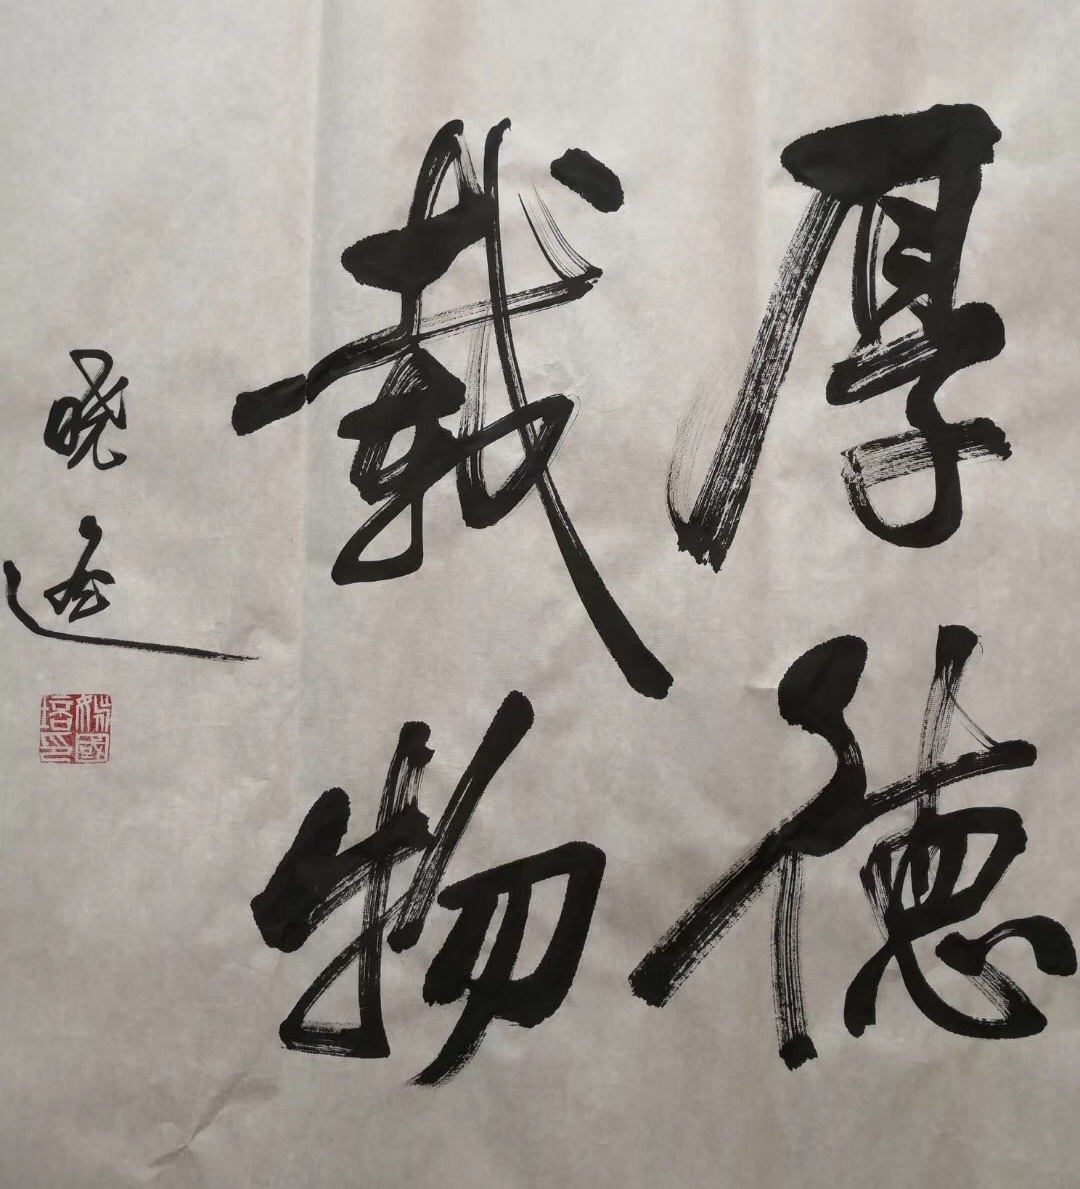 厚德
载物
晓